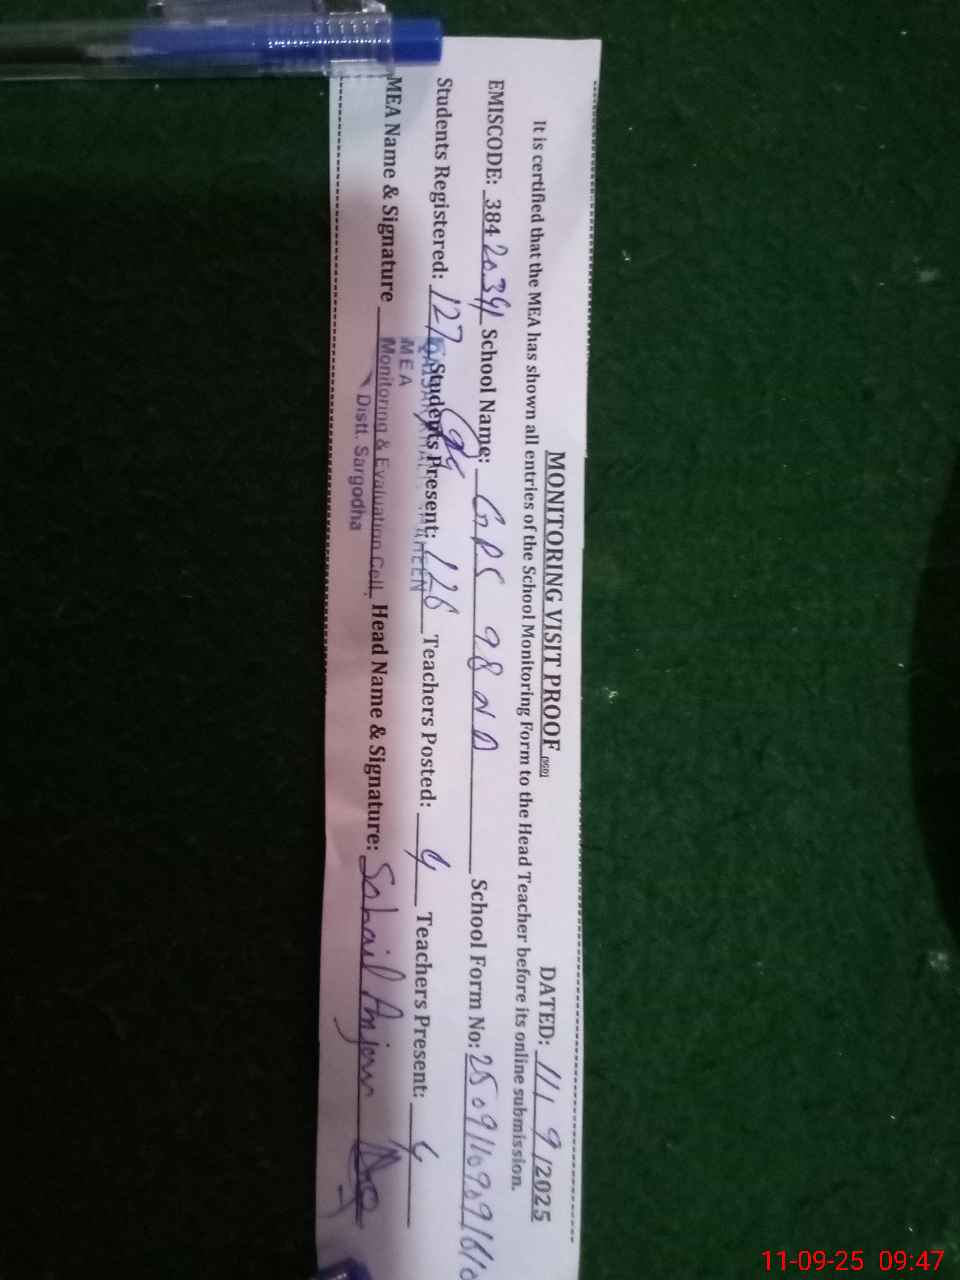 MONITORING VISIT PROOF (SGD) DATED: 11/9/2025
It is certified that the MEA has shown all entries of the School Monitoring Form to the Head Teacher before its online submission.
EMISCODE: 384 School Name: GPS 98 NB School Form No:
Students Registered: 127 Students Present: 126 Teachers Posted: 4 Teachers Present: 4
MEA Name & Signature Head Name & Signature: Sohail Anjum
QAISAR SHAHEEN
MEA
Monitoring & Evaluation Cell,
Distt. Sargodha
11-09-25 09:47